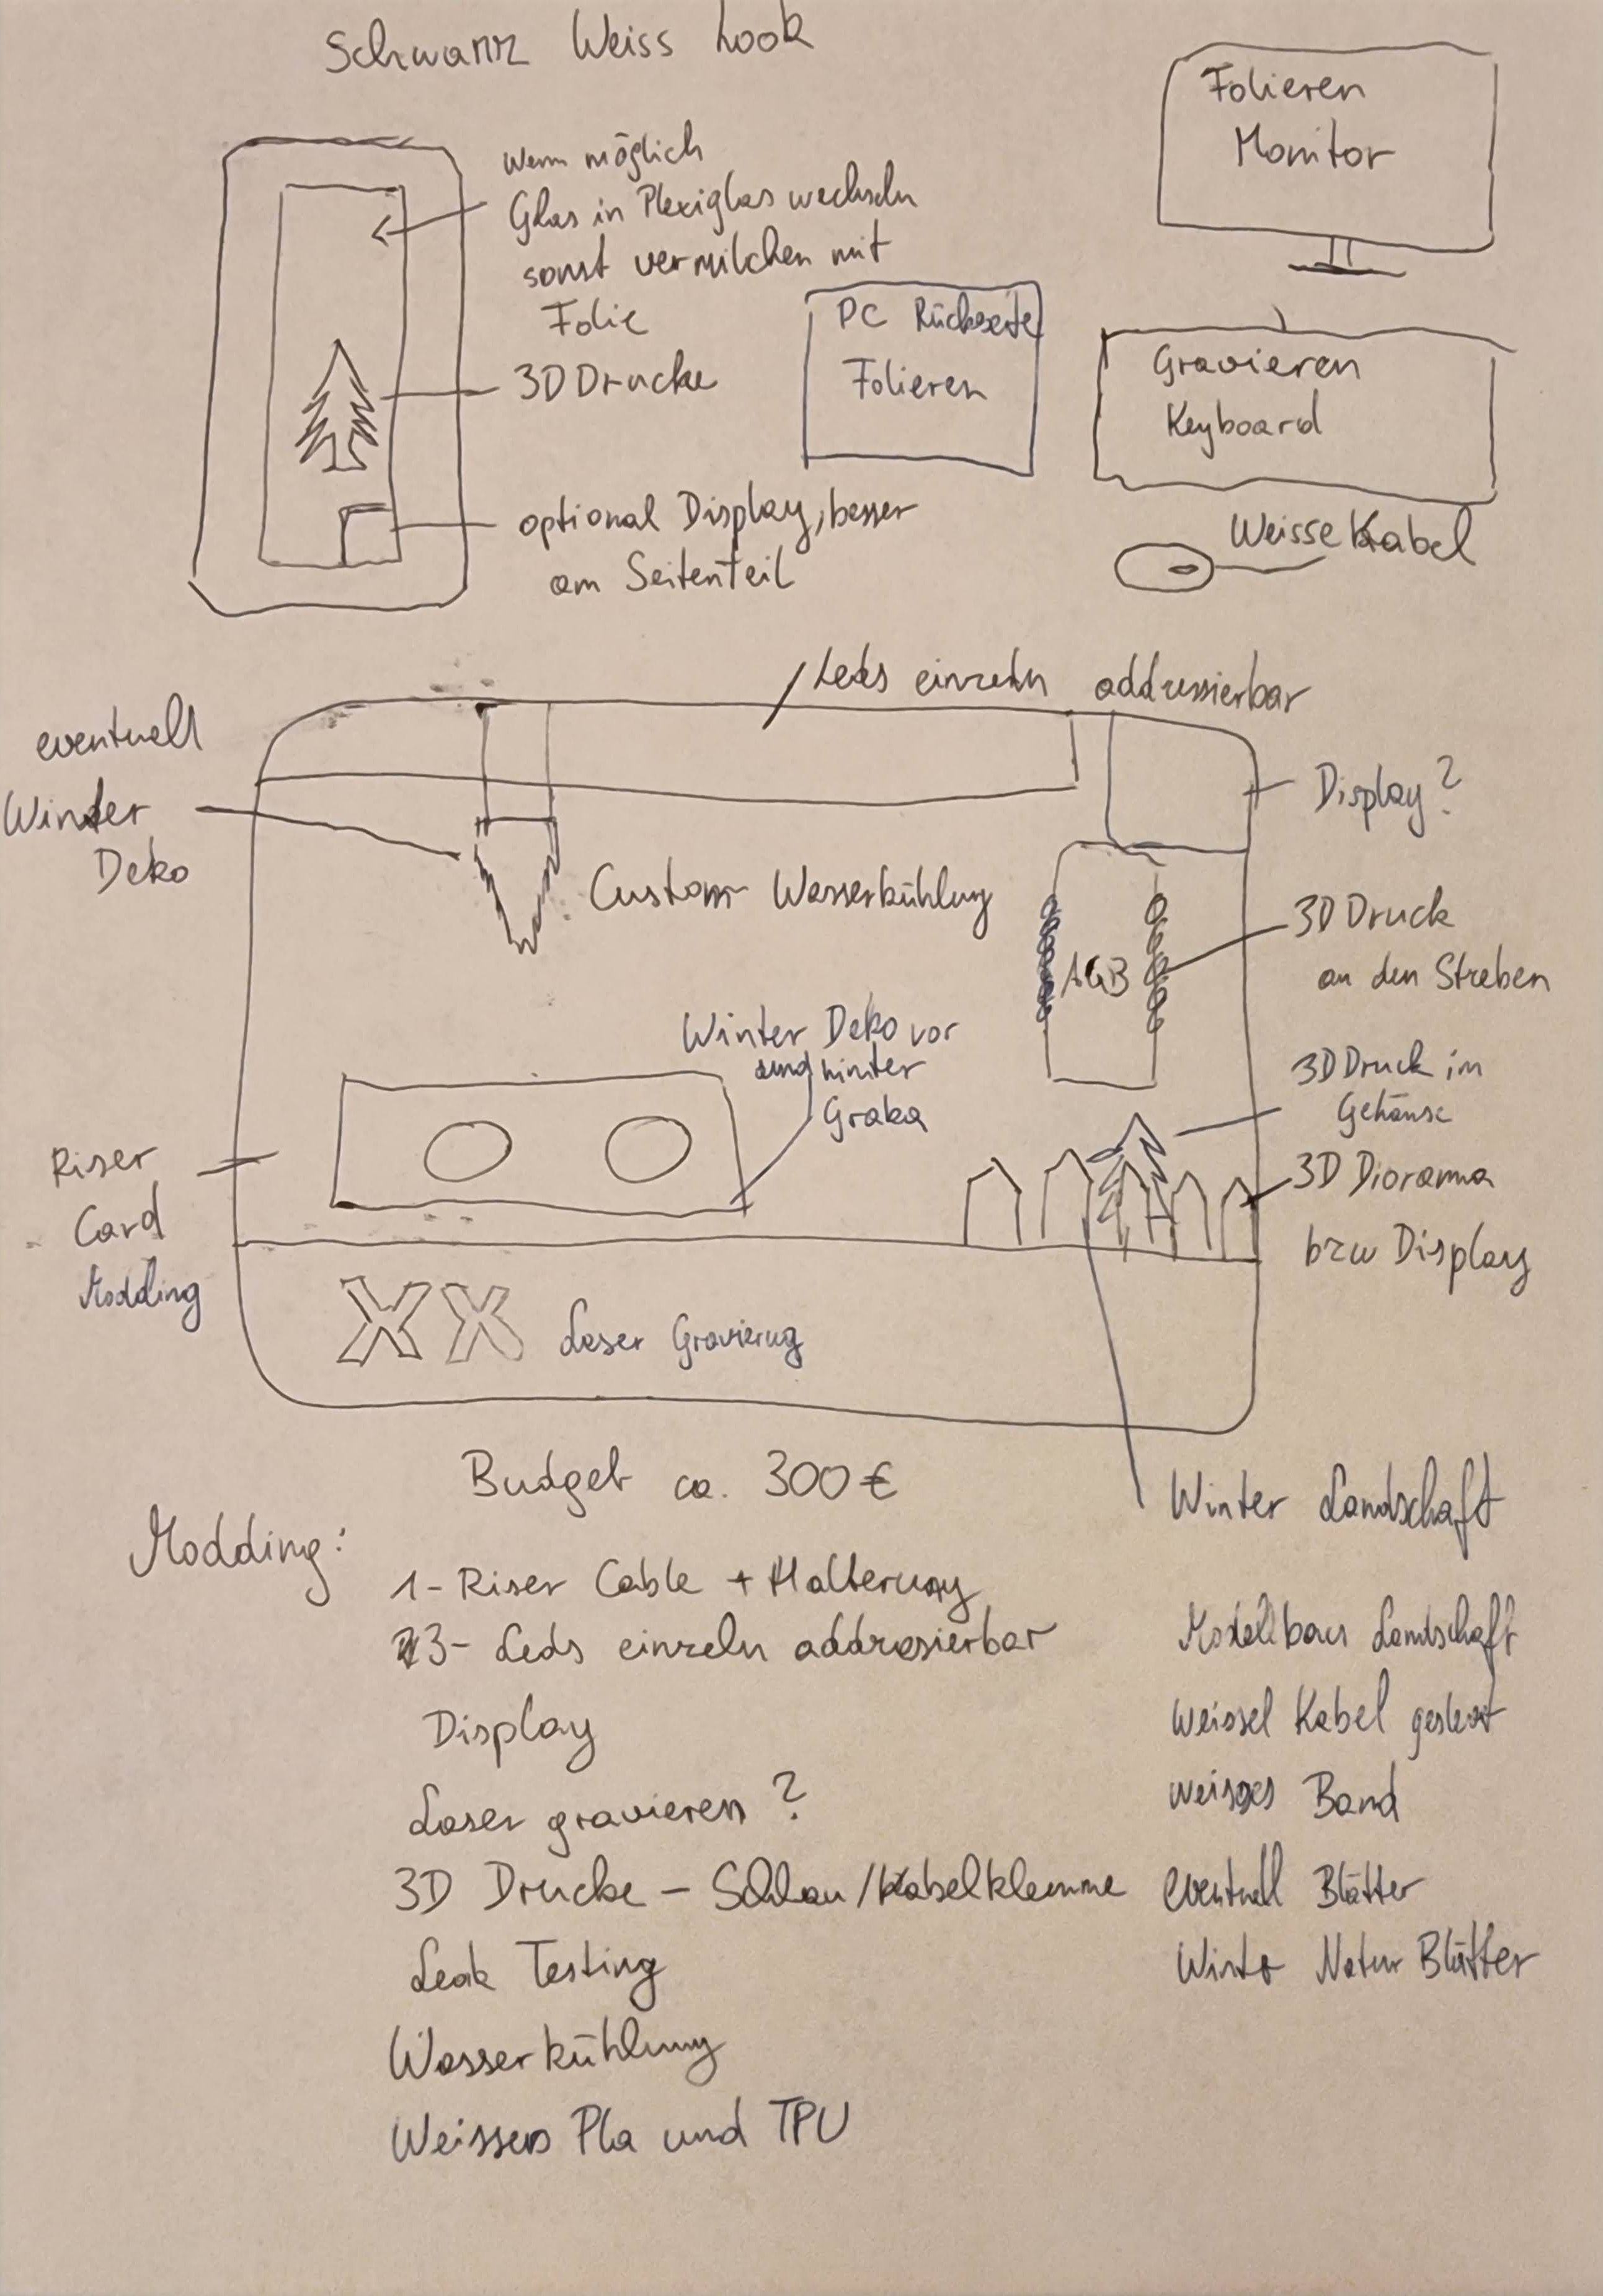 Schwarz Weiss Look
Wenn möglich
Glas in Plexiglas wechseln
sonst vermilchen mit
Folie
3D Drucke
optional Display, besser
am Seitenteil
PC Rückseite
Folieren
Folieren
Monitor
Gravieren
Keyboard
Weisse Kabel
Leds einzeln addressierbar
eventuell
Winter
Deko
Display?
Custom Wasserkühlung
AGB
3D Druck
an den Streben
Winter Deko vor
und hinter
Graka
3D Druck im
Gehäuse
3D Diorama
bzw Display
Riser
Card
Modding
XX Laser Gravierug
Budget ca. 300€
Winter Landschaft
Modding:
1- Riser Cable + Halterung
3- Leds einzeln addressierbar
Display
Laser gravieren?
3D Drucke - Schlau/Kabelklemme
Leak Testing
Wasserkühlung
Weisses Pla und TPU
Modellbau Landschaft
Kabel
weisses Band
eventuell Blätter
Natur Blätter